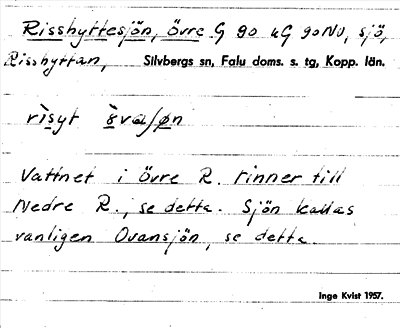 Risshyttesjön, Övre G 90 uG 90 NV, sjö,
Risshyttan, Silvbergs sn, Falu doms. s. tg, Kopp. län.
Vattnet i Övre R. rinner till
Nedre R., se detta. Sjön kallas
vanligen Ovansjön, se detta.
Inge Kvist 1957.